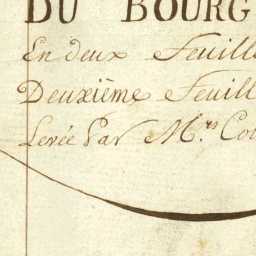 DU BOURG
En deux Feuill
Deuxième Feuill
Levée Par M.rs Co